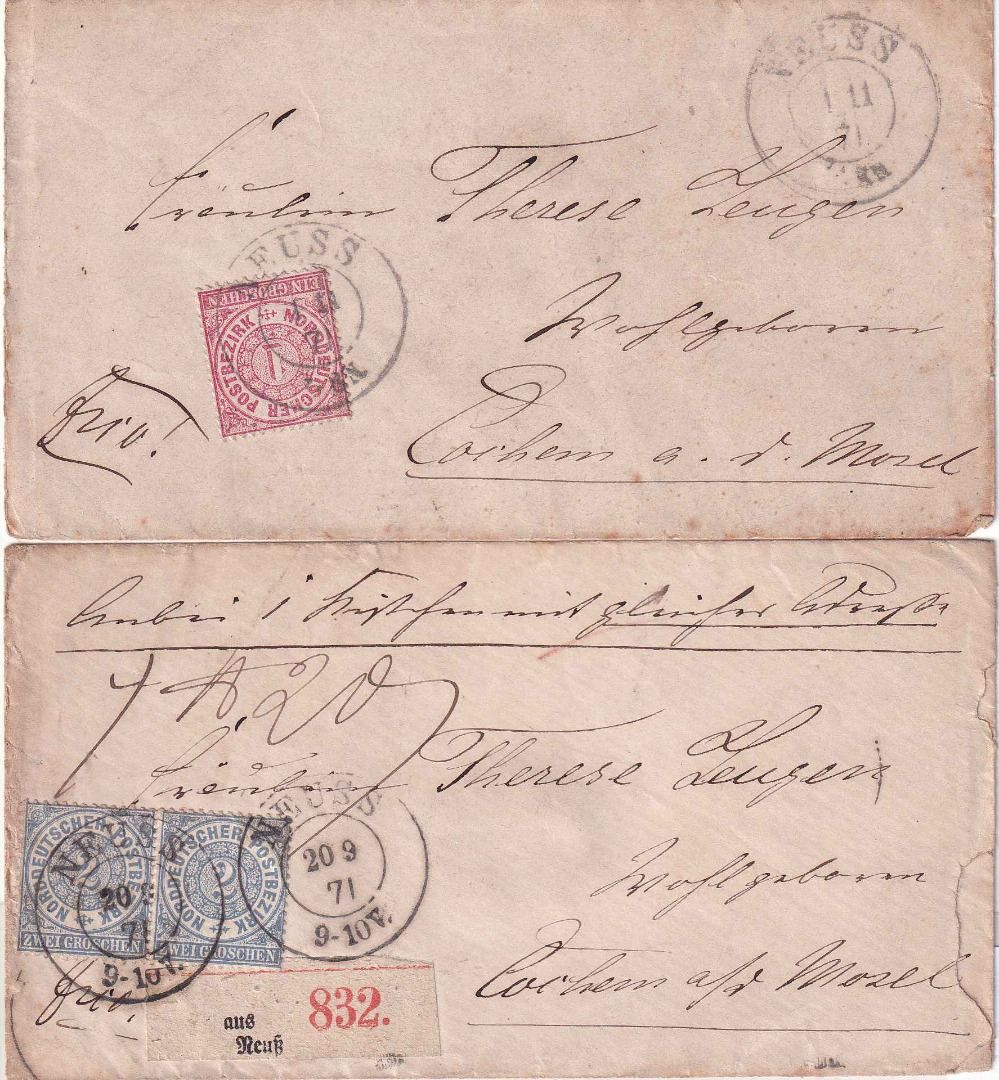 NEUSS
1 11
71
BAHN
Fräulein Therese Leugen
NEUSS
EIN GROSCHEN
NORDDEUTSCHER POSTBEZIRK
1
Wohlgeboren
frco!
Cochem a. d. Mosel
Anbei 1 Kistchen mit gleicher Adresse
20
Fräulein Therese Leugen
NEUSS
20 9
71
9-10V.
NORDDEUTSCHER POSTBEZIRK
2
ZWEI GROSCHEN
NORDDEUTSCHER POSTBEZIRK
2
ZWEI GROSCHEN
NEUSS
20 9
71
9-10V.
Wohlgeboren
frco.
Cochem a/d Mosel
832.
aus
Neuß